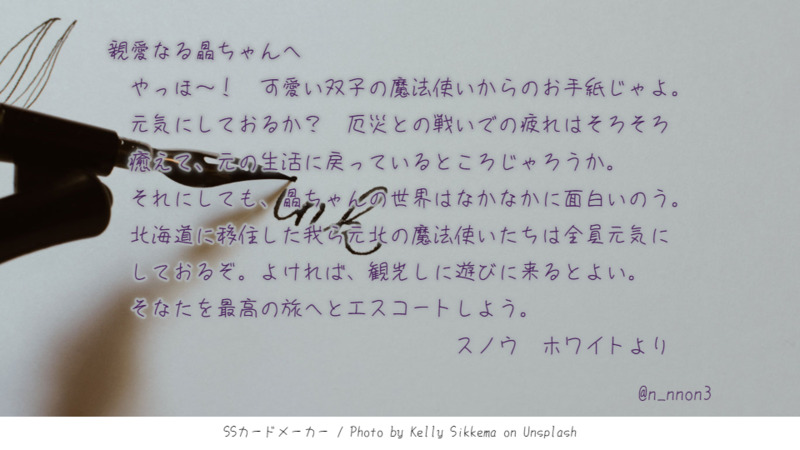 親愛なる晶ちゃんへ
やっほ～！　可愛い双子の魔法使いからのお手紙じゃよ。
元気にしておるか？　厄災との戦いでの疲れはそろそろ
癒えて、元の生活に戻っているところじゃろうか。
それにしても、晶ちゃんの世界はなかなかに面白いのう。
北海道に移住した我ら元北の魔法使いたちは全員元気に
しておるぞ。よければ、観光しに遊びに来るとよい。
そなたを最高の旅へとエスコートしよう。
スノウ　ホワイトより
@n_nnon3
SSカードメーカー / Photo by Kelly Sikkema on Unsplash